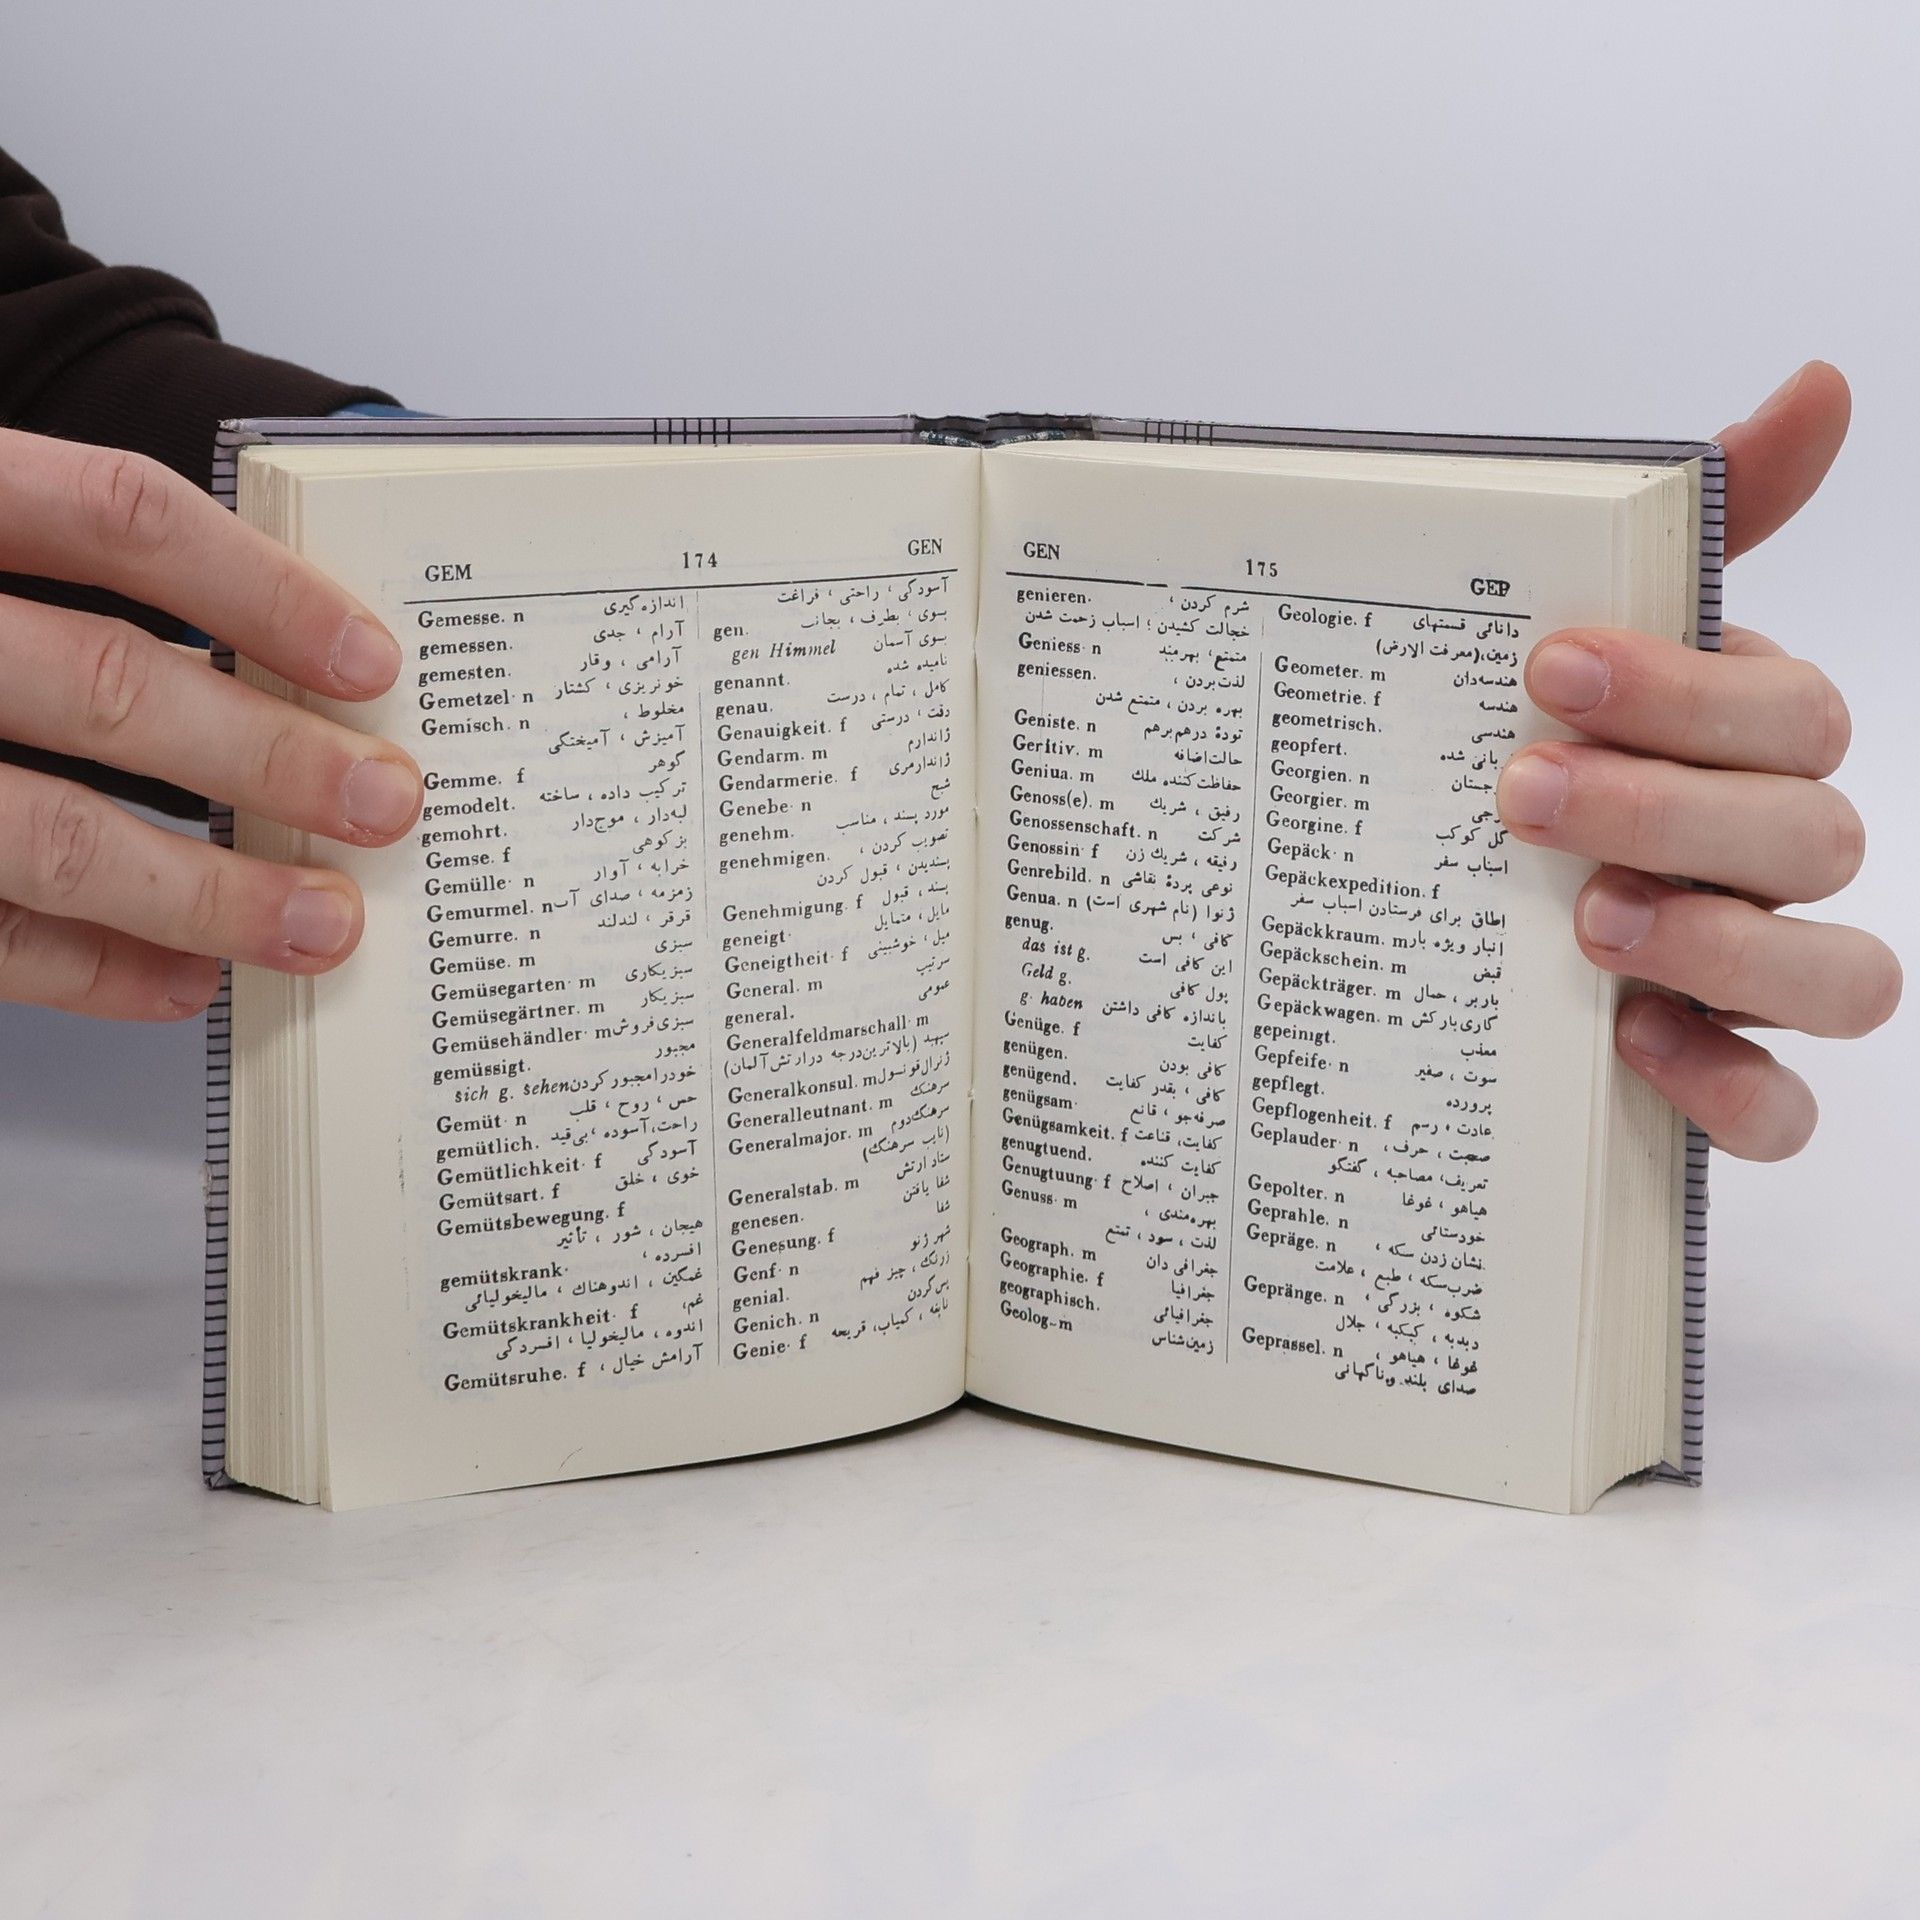 GEM 174 GEN
Gemesse. n اندازه گیری
gemessen. آرام ، جدی
gemesten. آرامی ، وقار
Gemetzel· n خونریزی ، کشتار
Gemisch. n مخلوط ،
آمیزش ، آمیختگی
Gemme. f گوهر
gemodelt. ترکیب داده ، ساخته
gemohrt. لبه‌دار ، موج‌دار
Gemse. f بزکوهی
Gemülle· n خرابه ، آوار
Gemurmel. n زمزمه ، صدای آب
Gemurre. n قرقر ، لندلند
Gemüse. m سبزی
Gemüsegarten· m سبزیکاری
Gemüsegärtner. m سبزیکار
Gemüsehändler· m سبزی‌فروش
gemüssigt. مجبور
sich g. sehen خودرامجبور کردن
Gemüt· n حس ، روح ، قلب
gemütlich. راحت،آسوده ،بی‌قید
Gemütlichkeit· f آسودگی
Gemütsart. f خوی ، خلق
Gemütsbewegung. f
هیجان ، شور ، تأثیر
gemütskrank· افسرده ،
غمگین ، اندوهناك ، مالیخولیائی
Gemütskrankheit· f غم،
اندوه ، مالیخولیا ، افسردگی
Gemütsruhe. f آرامش خیال ،
آسودگی ، راحتی ، فراغت
gen. بسوی ، بطرف ، بجانب
gen Himmel بسوی آسمان
genannt. نامیده شده
genau. کامل ، تمام ، درست
Genauigkeit. f دقت ، درستی
Gendarm. m ژاندارم
Gendarmerie. f ژاندارمری
Genebe· n شبح
genehm. مورد پسند ، مناسب
genehmigen. تصویب کردن ،
پسندیدن ، قبول کردن
Genehmigung. f پسند ، قبول
geneigt· مایل ، متمایل
Geneigtheit· f میل ، خوشبینی
General. m سرتیپ
general. عمومی
Generalfeldmarschall· m
سپهبد (بالاترین‌درجه درارتش‌آلمان)
Generalkonsul. m ژنرال‌قونسول
Generalleutnant. m سرهنك
Generalmajor. m سرهنك‌دوم
(نایب سرهنك)
Generalstab. m ستاد ارتش
genesen. شفا یافتن
Genesung. f شفا
Genf· n شهر ژنو
genial. زرنك ، چیز فهم
Genich. n پس گردن
Genie· f نابغه ، کمیاب، قریحه
GEN 175 GEP
genieren. شرم کردن ،
خجالت کشیدن ؛ اسباب زحمت شدن
Geniess· n متمتع، بهرمند
geniessen. لذت‌بردن ،
بهره بردن ، متمتع شدن
Geniste. n تودهٔ درهم‌برهم
Geritiv. m حالت‌اضافه
Geniua. m حفاظت‌کننده ملك
Genoss(e). m رفیق ، شریك
Genossenschaft. n شرکت
Genossin· f رفیقه ، شریك زن
Genrebild. n نوعی پردهٔ نقاشی
Genua. n ژنوا (نام شهری است)
genug. کافی ، بس
das ist g. این کافی است
Geld g. پول کافی
g· haben باندازه کافی داشتن
Genüge. f کفایت
genügen. کافی بودن
genügend. کافی ، بقدر کفایت
genügsam· صرفه‌جو ، قانع
Genügsamkeit. f کفایت، قناعت
genugtuend. کفایت کننده
Genugtuung· f جبران ، اصلاح
Genuss· m بهره‌مندی ،
لذت ، سود ، تمتع
Geograph. m جغرافی دان
Geographie. f جغرافیا
geographisch. جغرافیائی
Geolog-m زمین‌شناس
Geologie. f دانائی قسمتهای
زمین،(معرفت الارض)
Geometer. m هندسه‌دان
Geometrie. f هندسه
geometrisch. هندسی
geopfert.
Georgien. n
Georgier. m
Georgine. f گل کوکب
Gepäck· n اسباب سفر
Gepäckexpedition. f
اطاق برای فرستادن اسباب سفر
Gepäckkraum. m انبار ویژه بار
Gepäckschein. m قبض
Gepäckträger. m باربر ، حمال
Gepäckwagen. m گاری‌بارکش
gepeinigt. معذب
Gepfeife· n سوت ، صفیر
gepflegt. پرورده
Gepflogenheit. f عادت ، رسم
Geplauder· n صحبت ، حرف ،
تعریف، مصاحبه ، گفتگو
Gepolter. n هیاهو ، غوغا
Geprahle. n خودستائی
Gepräge. n نشان زدن سکه ،
ضرب‌سکه ، طبع ، علامت
Gepränge. n شکوه ، بزرگی ،
دبدبه ، کبکبه ، جلال
Geprassel. n غوغا ، هیاهو ،
صدای بلند وناگهانی